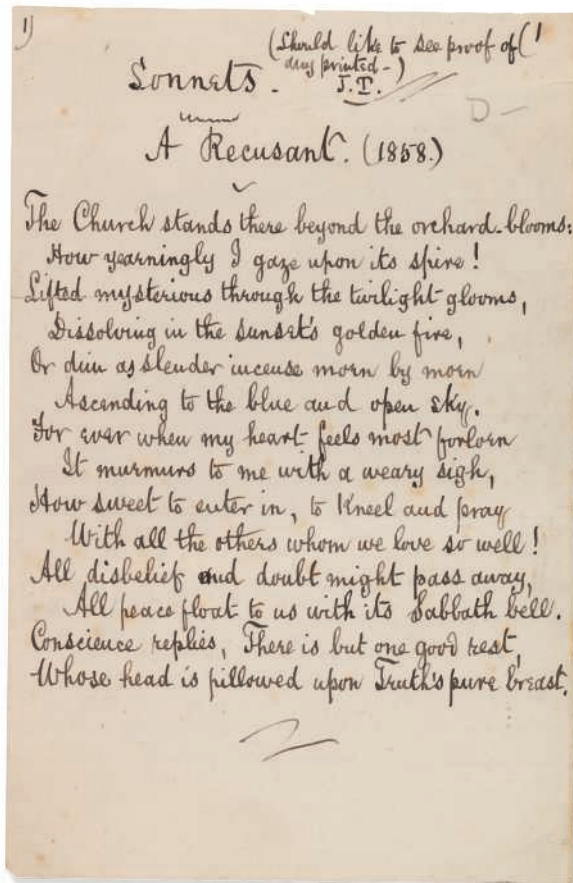 1)
(Should like to see proof of (1
any printed—)
Sonnets.
J.T.
D—
A Recusant. (1858.)
The Church stands there beyond the orchard-blooms:
How yearningly I gaze upon its spire!
Lifted mysterious through the twilight glooms,
Dissolving in the sunset's golden fire,
Or dim as slender incense morn by morn
Ascending to the blue and open sky.
For ever when my heart feels most forlorn
It murmurs to me with a weary sigh,
How sweet to enter in, to kneel and pray
With all the others whom we love so well!
All disbelief and doubt might pass away,
All peace float to us with its Sabbath bell.
Conscience replies, There is but one good rest,
Whose head is pillowed upon Truth's pure breast.